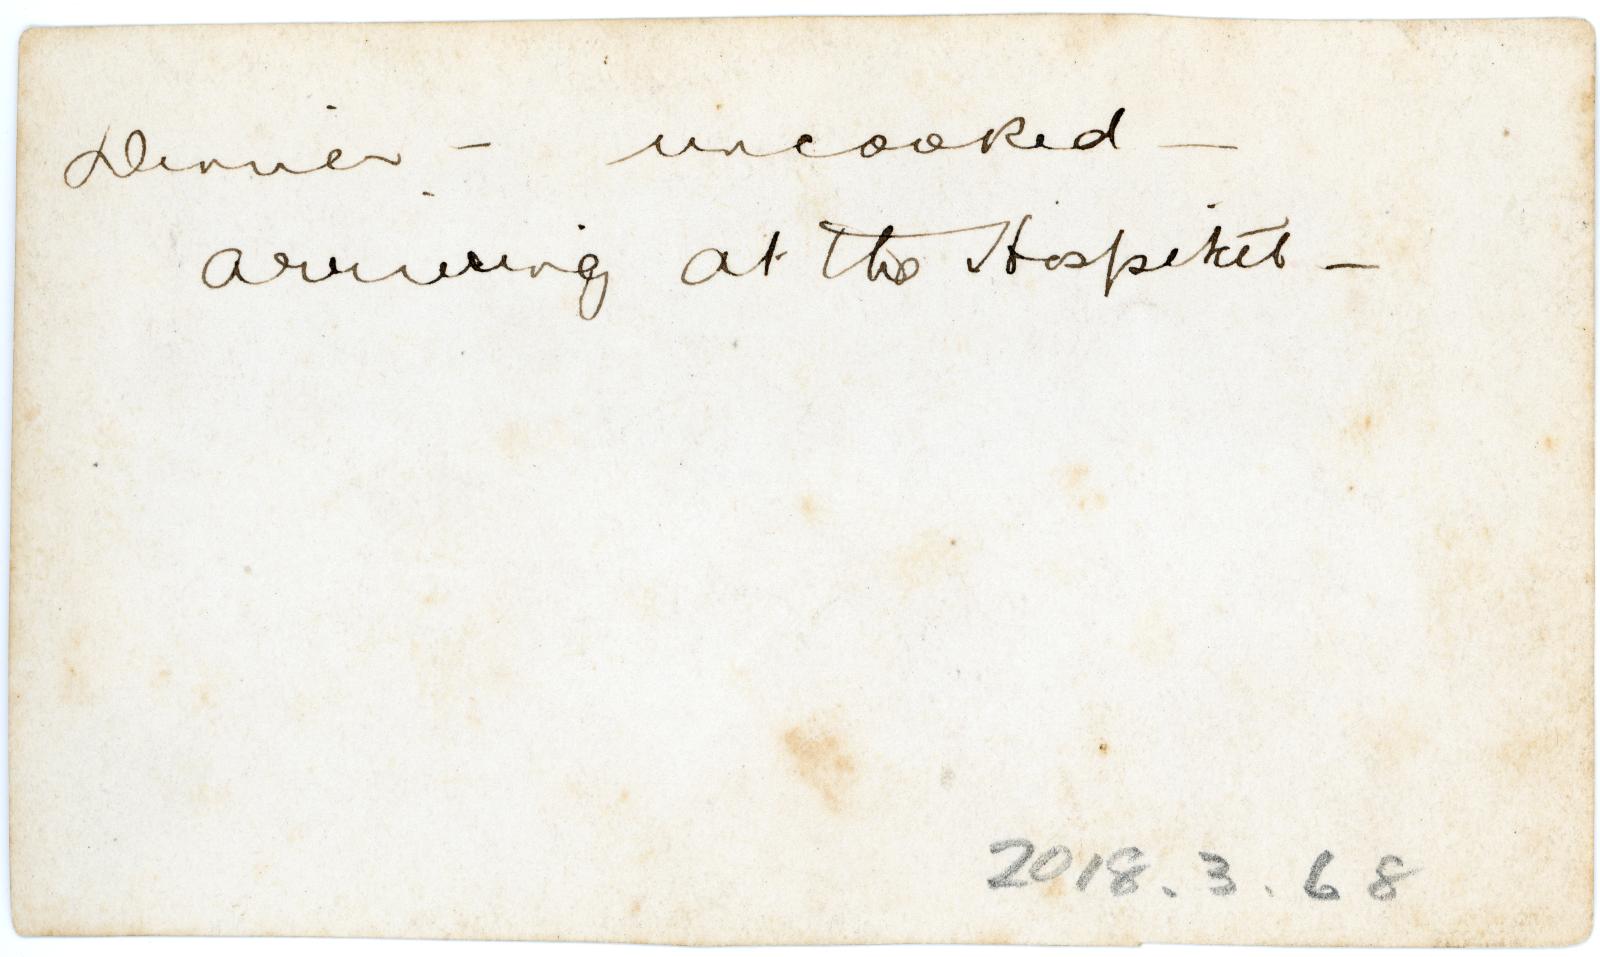 Dinner - uncooked -
arriving at the Hospital -
2018.3.68